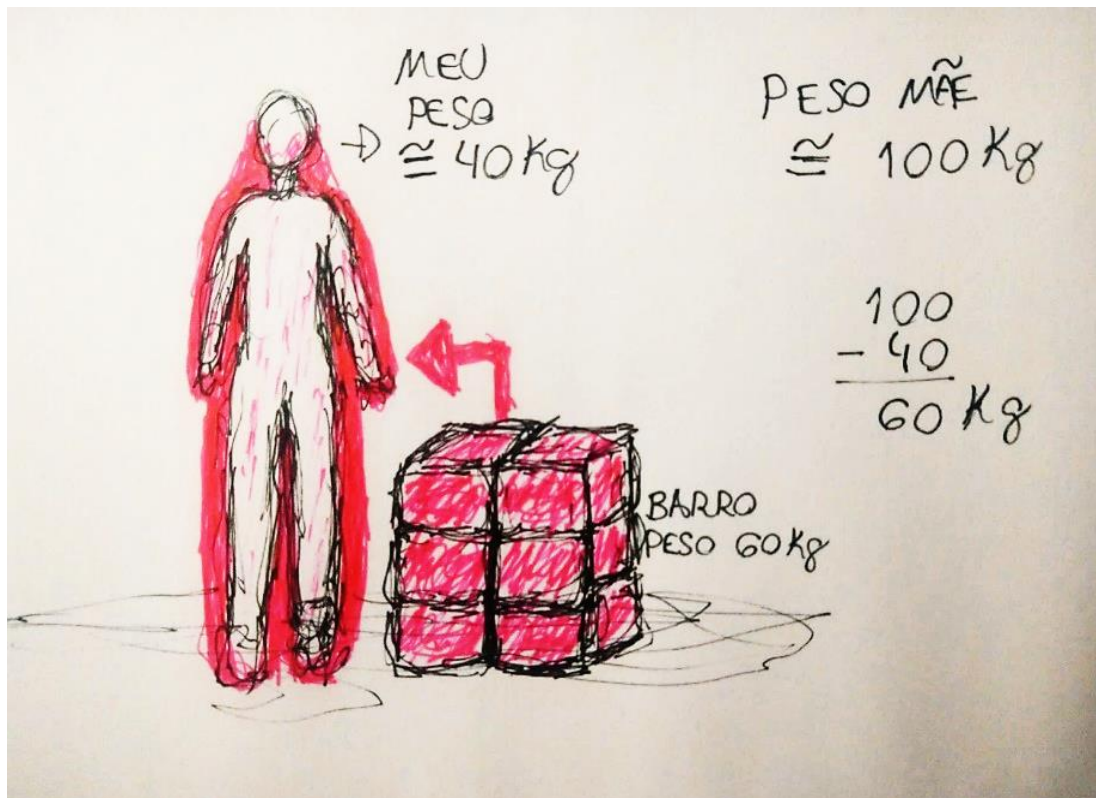 MEU
PESO
≅ 40 Kg
PESO MÃE
≅ 100 Kg
100
- 40
60 Kg
BARRO
PESO 60 Kg